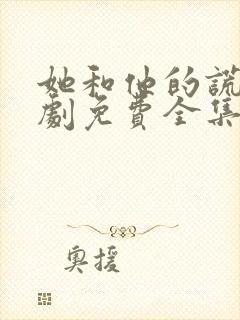 她和他的謊
劇免費全集
奧援